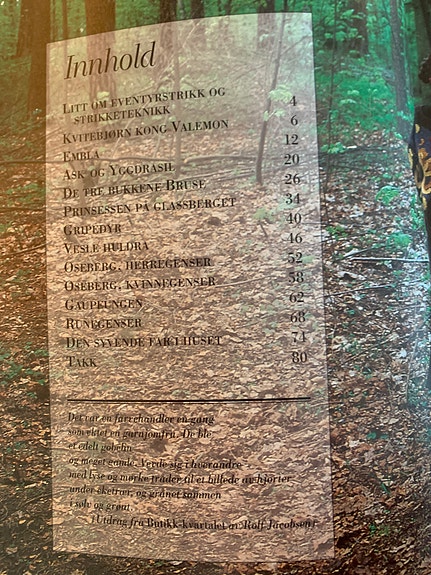 Innhold
Litt om eventyrstrikk og 4
strikketeknikk
Kvitebjørn kong Valemon 6
Embla 12
Ask og Yggdrasil 20
De tre bukkene Bruse 26
Prinsessen på glassberget 34
Gripedyr 40
Vesle huldra 46
Oseberg, herregenser 52
Oseberg, kvinnegenser 58
Gaupeungen 62
Runegenser 68
Den syvende far i huset 74
Takk 80
Det var en farvehandler en gang
som ektet en garnjomfru. De ble
et edelt gobelin
og meget gamle. Verde sig i hverandre
med lyse og mørke tråder til et billede av hjorter
under eketrær, og grånet sammen
i sølv og grønt.
(Utdrag fra Butikk-kvartalet av Rolf Jacobsen)